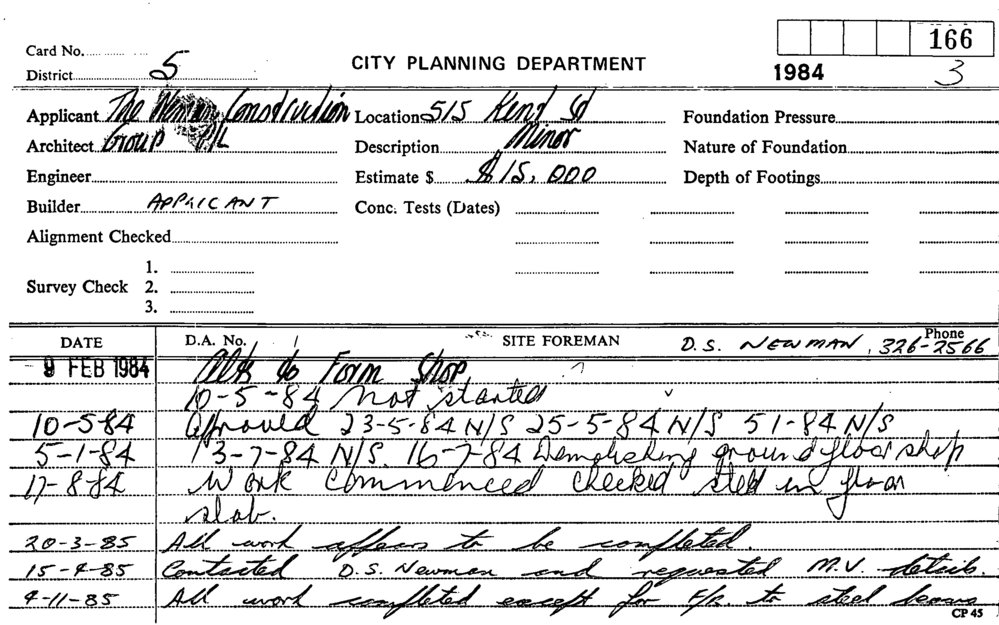 166
Card No.
District 5
CITY PLANNING DEPARTMENT
1984 3
Applicant The Newman Construction
Location 515 Kent St
Foundation Pressure
Architect Group P/L
Description Minor
Nature of Foundation
Engineer
Estimate $ $15,000
Depth of Footings
Builder APPLICANT
Conc. Tests (Dates)
Alignment Checked
1.
Survey Check 2.
3.
DATE D.A. No. SITE FOREMAN D.S. NEWMAN Phone 326-2566
9 FEB 1984 Alts to Form Shop
10-5-84 not started
10-5-84 approved 23-5-84 N/S 25-5-84 N/S 5 1-84 N/S
5-1-84 13-7-84 N/S. 16-7-84 Demolishing ground floor shop
17-8-84 Work commenced checked steel in floor
slab.
20-3-85 All work appears to be completed.
15-4-85 Contacted D.S. Newman and requested M.V. details.
4-11-85 All work completed except for F/R. to steel beams
CP 45